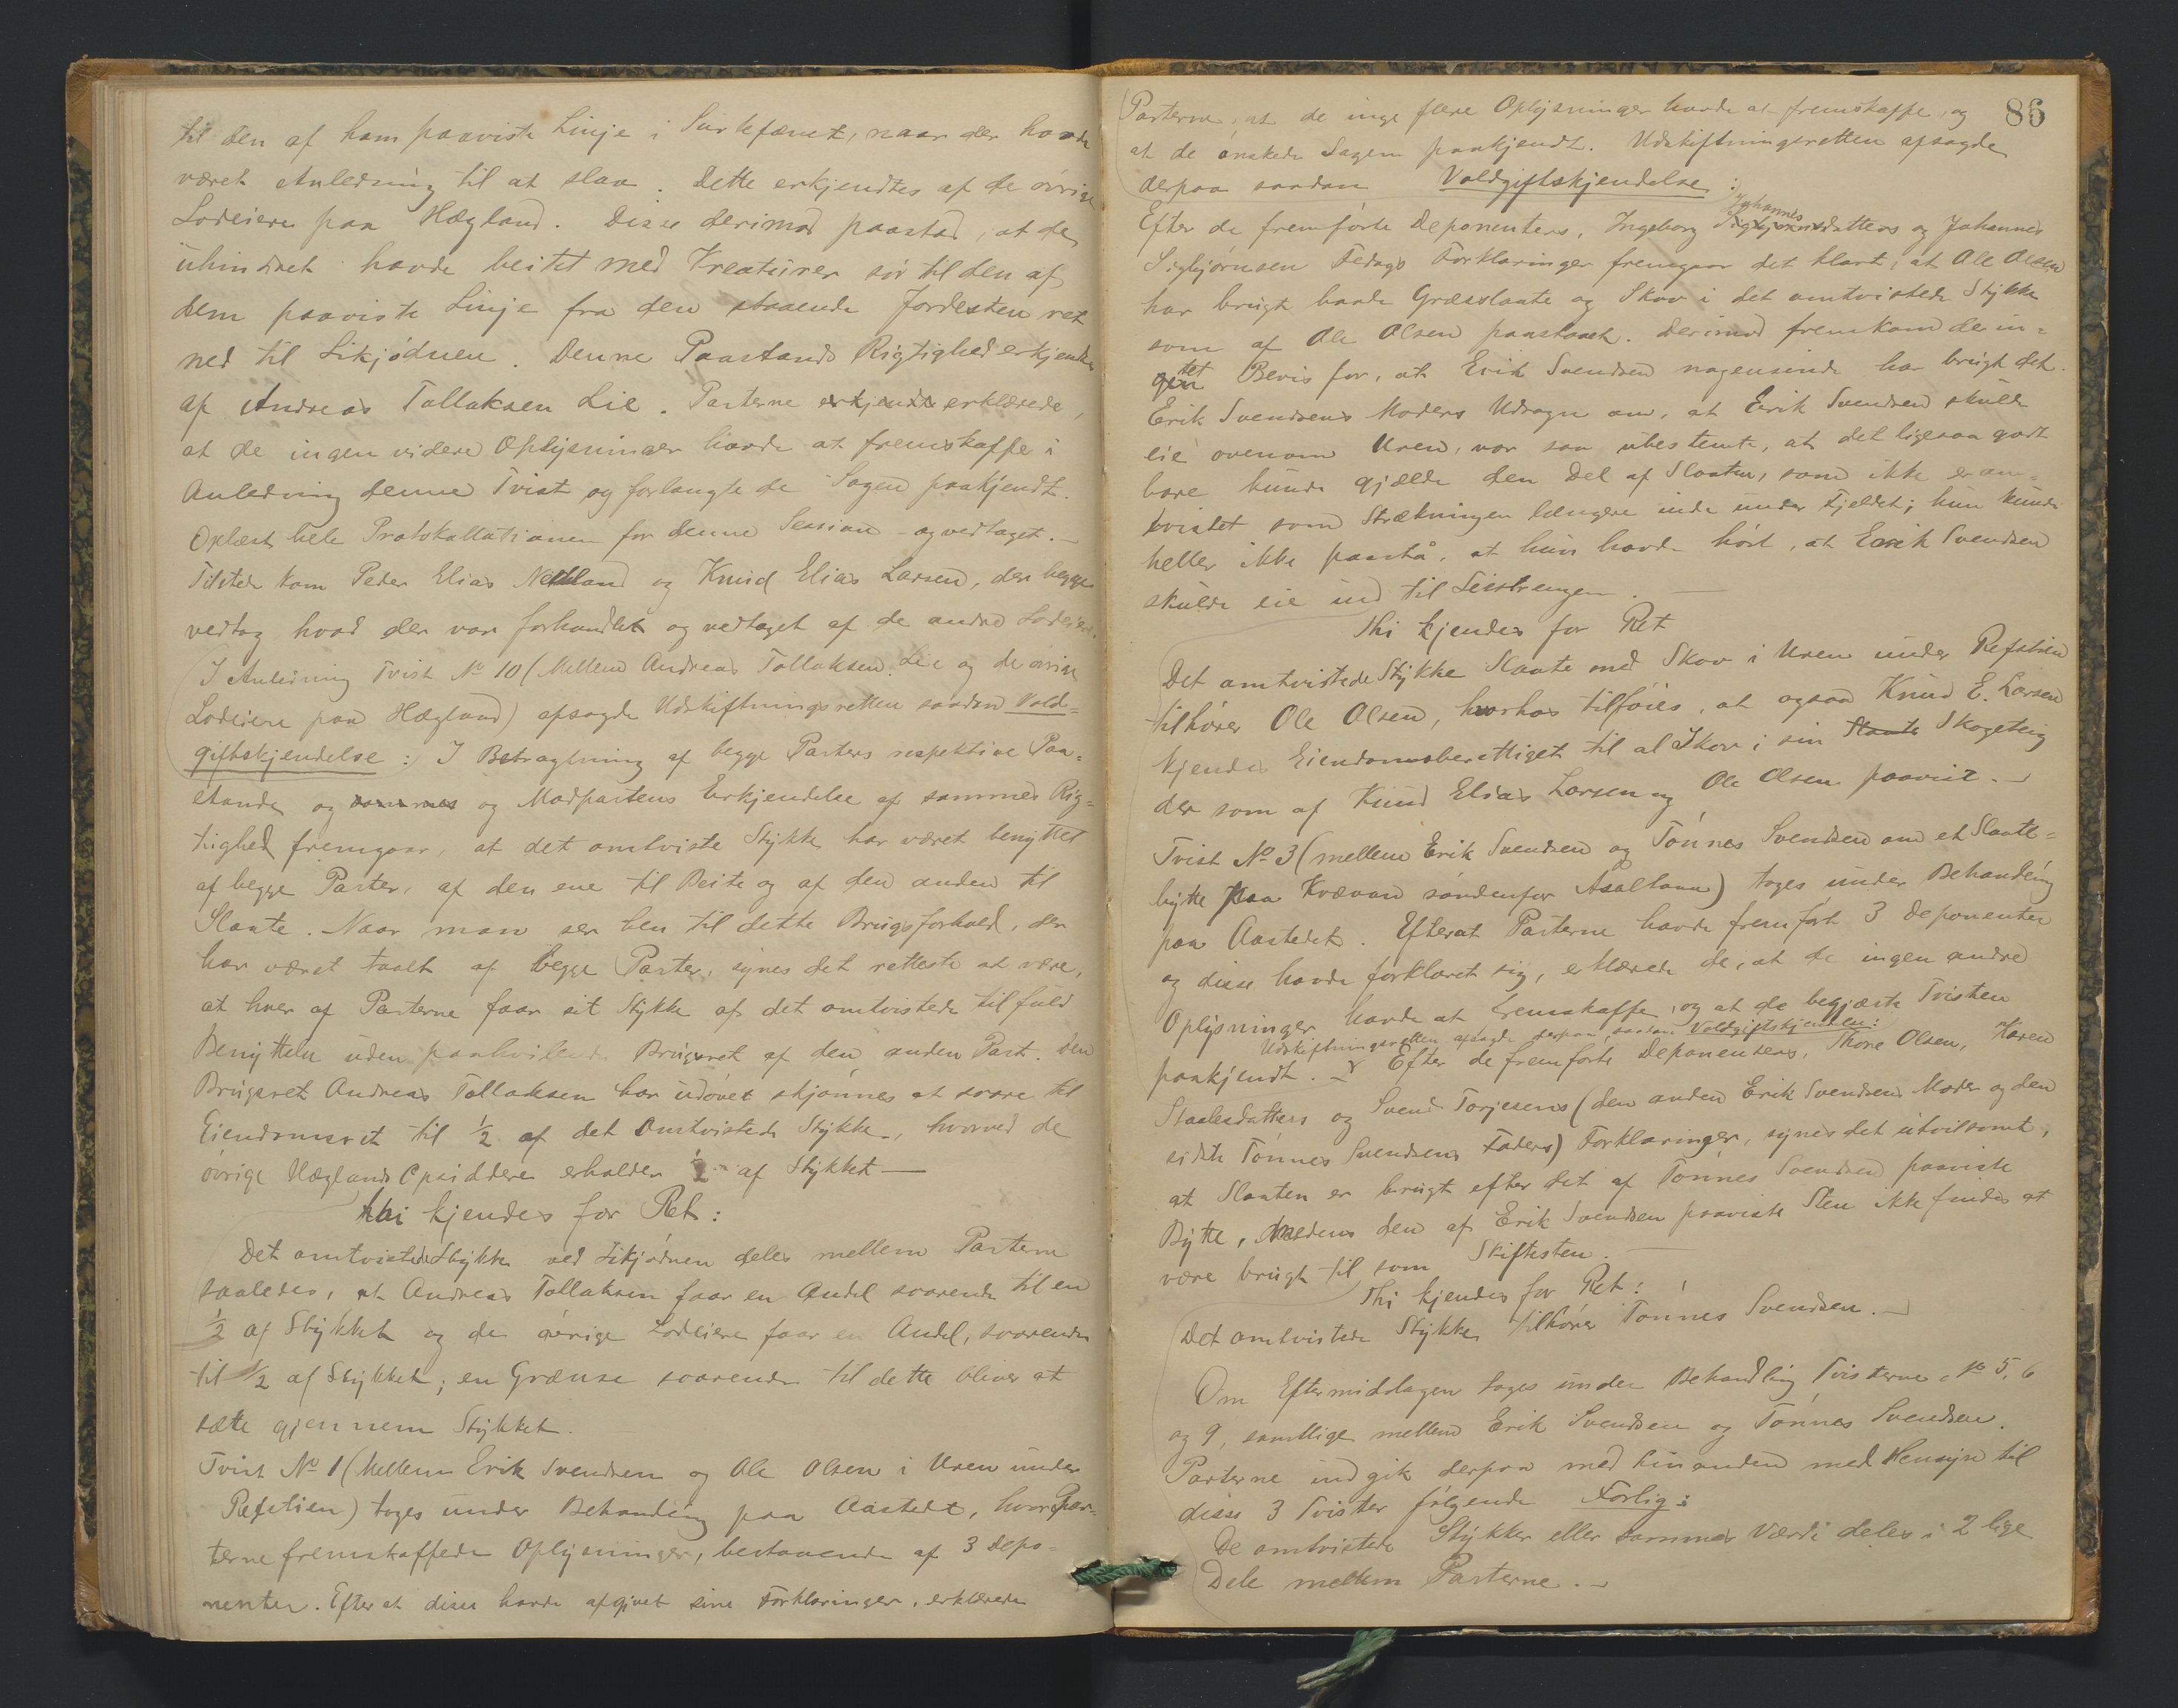 til den af ham paaviste Linje i Surtefaret, naar der havde
været Anledning til at slaa. Dette erkjendtes af de øvrige
Lodeiere paa Hægland. Disse derimod paastod, at de
uhindret havde beitet med Kreaturer sør til den af
dem paaviste Linje fra den staaende Jordesten ret
ned til Likjødnen. Denne Paastands Rigtighed erkjendtes
af Andreas Tallaksen Lie. Parterne erkjendte erklærede,
at de ingen videre Oplysninger havde at fremskaffe i
Anledning denne Tvist og forlangte de Sagen paakjendt.
Oplæst hele Protokollationen for denne Session og vedtaget. –
Tilstede kom Peder Elias Nedland og Knud Elias Larsen, der begge
vedtog hvad der var forhandlet og vedtaget af de andre Lodeiere.
I Anledning Tvist No 10 (Mellem Andreas Tallaksen Lie og de øvrige
Lodeiere paa Hægland) afsagde Udskiftningsretten saadan Vold=
giftskjendelse: I Betragtning af begge Parters respektive Paa=
stande og sammes og Modpartens Erkjendelse af sammes Rig=
tighed fremgaar, at det omtviste Stykke har været benyttet
af begge Parter, af den ene til Beite og af den anden til
Slaate. Naar man ser hen til dette Brugsforhold, der
har været taalt af begge Parter, synes det retteste at være,
at hver af Parterne faar sit Stykke af det omtvistede til fuld
Benyttelse uden paahvilende Brugsret af den anden Part. Den
Brugsret Andreas Tallaksen har udøvet skjønnes at svare til
Eiendomsret til ½ af det Omtvistede Stykke, hvorved de
øvrige Hæglands Opsiddere erholder ½ af Stykket —
thi kjendes for Ret:
Det omtvistede Stykke ved Likjødnen deles mellem Parterne
saaledes, at Andreas Tallaksen faar en Andel svarende til en
½ af Stykket og de øvrige Lodeiere faar en Andel, svarende
til ½ af Stykket; en Grænse svarende til dette bliver at
sætte gjennem Stykket.
Tvist No 1 (Mellem Erik Svendsen og Ole Olsen i Uren under
Refstien) toges under Behandling paa Aastedet, hvor Par=
terne fremskaffede Oplysninger, bestaaende af 3 Depo=
nenter. Efter at disse havde afgivet sine Forklaringer, erklærede
86
Parterne, at de inge flere Oplysninger havde at fremskaffe, og
at de ønskede Sagen paakjendt. Udskiftningsretten afsagde
derpaa saadan Voldgiftskjendelse:
Johannes
Efter de fremførte Deponenters, Ingeborg Sigbjørnsdatters og Johannes
Sigbjørnsen Fedags Forklaringer fremgaar det klart, at Ole Olsen
har brugt baade Græsslaate og Skov i det omtvistede Stykke
som af Ole Olsen paastaaet. Derimod fremkom der in=
gen tet Bevis for, at Erik Svendsen nogensinde har brugt det.
Erik Svendsens Moders Udsagn om, at Erik Svendsen skulde
eie ovenom Uren, var saa ubestemte, at det ligesaa godt
bare kunde gjælde den Del af Slaaten, som ikke er om=
tvistet som Strækningen længere inde under Fjeldet; hun kunde
heller ikke paastå, at hun havde hørt, at Erik Svendsen
skulde eie ind til Leistrengen. —
Thi kjendes for Ret
Det omtvistede Stykke Slaate med Skov i Uren under Refstien
tilhører Ole Olsen, hvorhos tilføies, at ogsaa Knud E. Larsen
kjendes Eiendomsberettiget til al Skov i sin Slaate Skogeteig
der som af Knud Elias Larsen og Ole Olsen paavist. –
Tvist No 3 (mellem Erik Svendsen og Tønnes Svendsen om et Slaate=
bytte paa Kvævan søndenfor Asaltona) toges under Behandling
paa Aastedet. Efterat Parterne havde fremført 3 Deponenter
og disse havde forklaret sig, erklærede de, at de ingen andre
Oplysninger havde at fremskaffe, og at de begjærte Tvisten
Udskiftningsretten afsagde derpaa saadan Voldgiftskjendelse:
paakjendt. – Efter de fremførte Deponenters, Thore Olsen, Karen
Staalesdatters og Svend Torjesens (den anden Erik Svendsens Moder og den
sidste Tønnes Svendsens Faders) Forklaringer, synes det utvilsomt,
at Slaaten er brugt efter det af Tønnes Svendsen paaviste
Bytte, medens den af Erik Svendsen paaviste Sten ikke findes at
være brugt til som Skiftesten. —
Thi kjendes for Ret:
Det omtvistede Stykke tilhører Tønnes Svendsen. –
Om Eftermiddagen toges under Behandling Tvisterne No 5, 6
og 9, samtlige mellem Erik Svendsen og Tønnes Svendsen.
Parterne indgik derpaa med hinanden med Hensyn til
disse 3 Tvister følgende Forlig:
De omtvistede Stykker eller sammes Værdi deles i 2 lige
Dele mellem Parterne. –